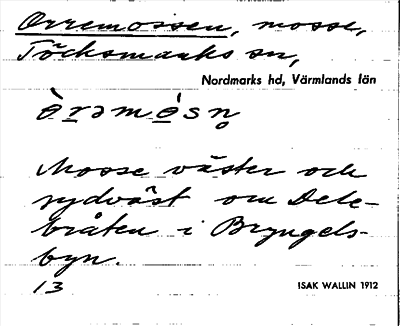 Orremossen, mosse,
Töcksmarks sn,
Nordmarks hd, Värmlands län
òrəmósn̥
Mosse väster och
sydväst om Dele-
bråten i Bryngels-
byn.
13
ISAK WALLIN 1912